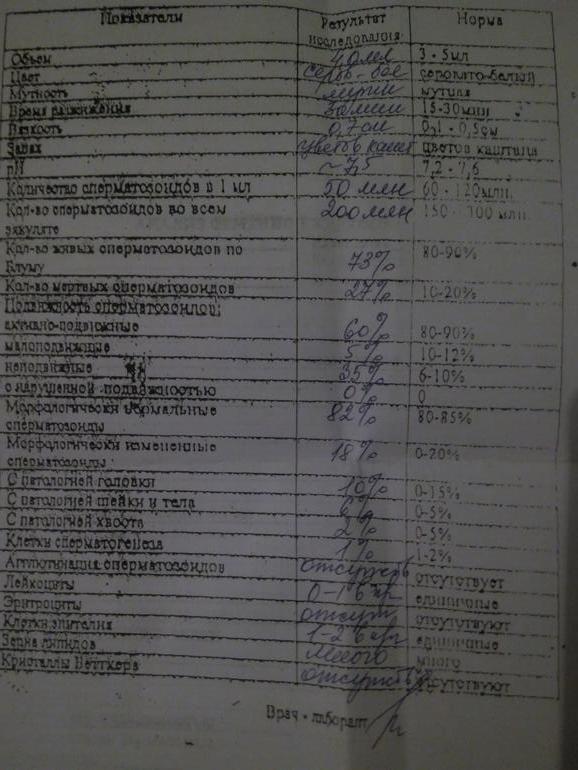 Показатели Результат исследования Норма
Объем 4,0 мл 3 - 5мл
Цвет серов-бел серовато-белый
Мутность мутн мутная
Время разжижения 30 мин 15-30мин
Вязкость 0,7 см 0,1 - 0,5см
Запах цветов кашт цветов каштана
pH ~ 7,5 7,2 - 7,6
Количество сперматозоидов в 1 мл 50 млн 60 - 120млн.
Кол-во сперматозоидов во всем эякуляте 200 млн 150 - млн
Кол-во живых сперматозоидов по Блуму 73% 80-90%
Кол-во мертвых сперматозоидов 27% 10-20%
Подвижность сперматозоидов:
активно-подвижные 60% 80-90%
малоподвижные 5% 10-12%
неподвижные 35% 6-10%
с нарушенной подвижностью 0% 0
Морфологически нормальные сперматозоиды 82% 80-85%
Морфологически измененные сперматозоиды 18% 0-20%
С патологией головки 10% 0-15%
С патологией шейки и тела 0-5%
С патологией хвоста 2% 0-5%
Клетки сперматогенеза 1% 1-2%
Агглютинация сперматозоидов отсутств отсутствует
Лейкоциты 0-1 в единичные
Эритроциты отсутст отсутствуют
Клетки эпителия 1-2 в единичные
Зерна липидов много много
Кристаллы Беттхера отсутств отсутствуют
Врач - лаборант